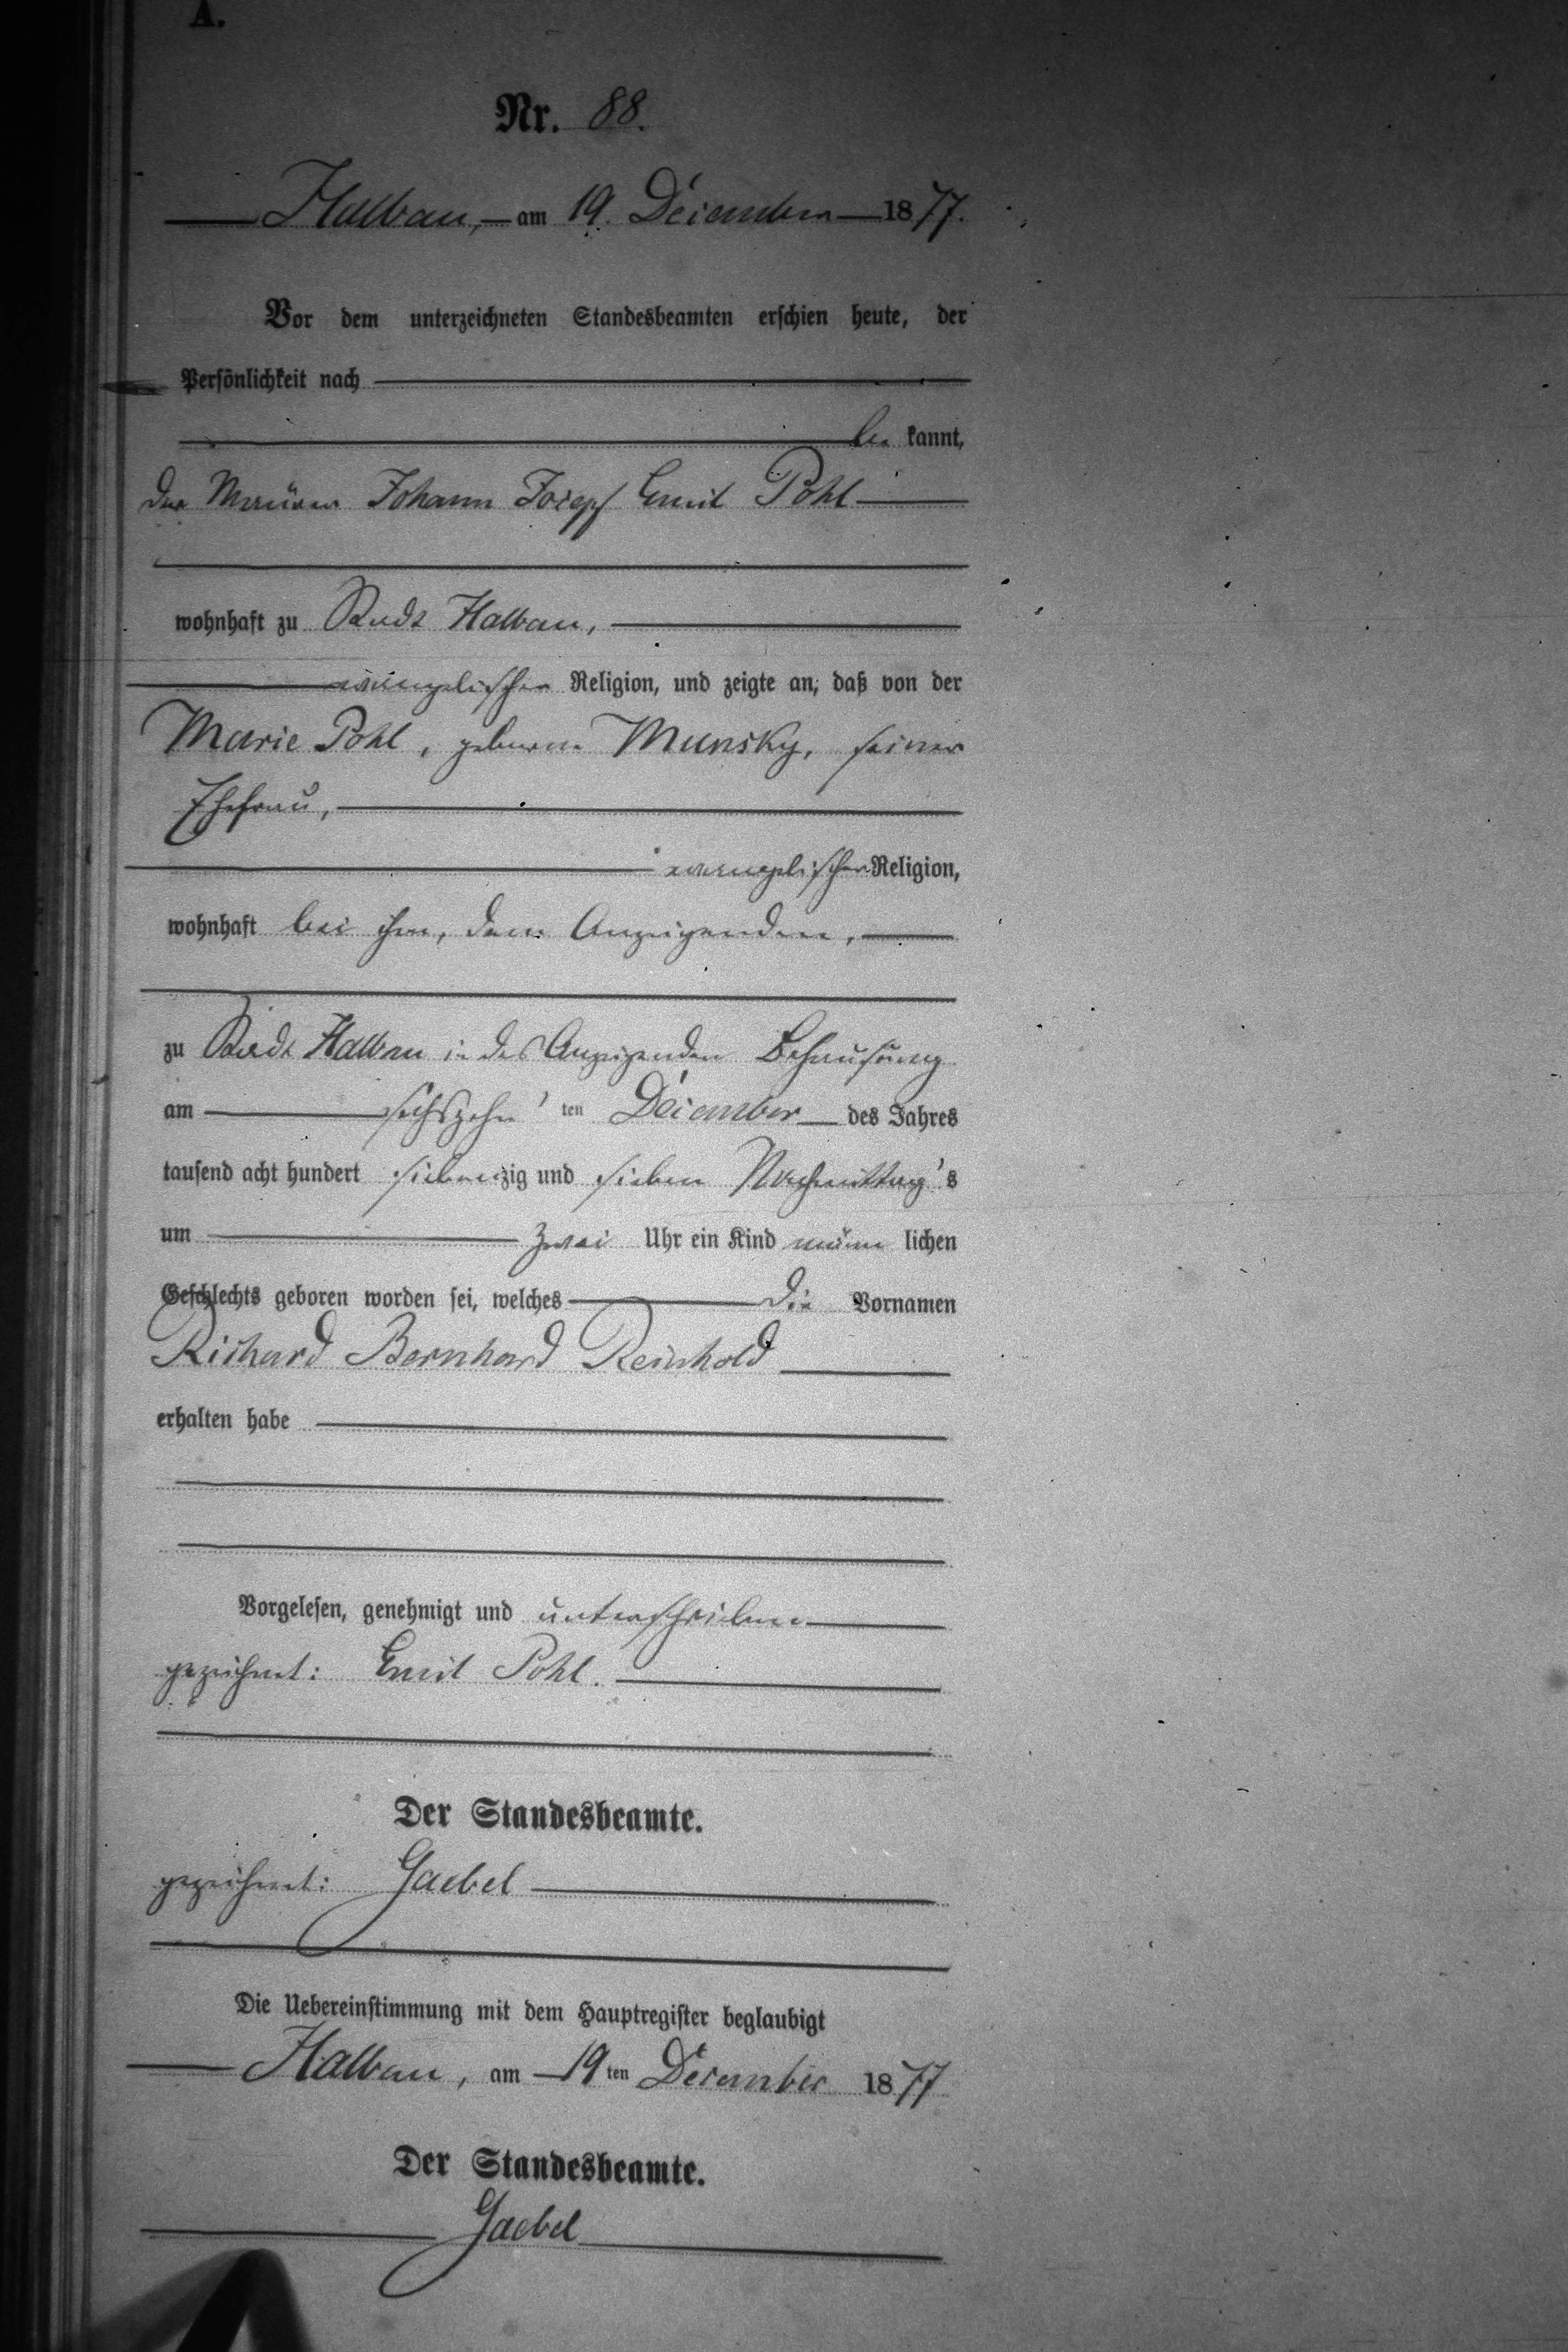 A.
Nr. 88.
Halbau, am 19. December 1877.
Vor dem unterzeichneten Standesbeamten erschien heute, der
Persönlichkeit nach
be kannt,
der Maurer Johann Josepf Emil Pohl
wohnhaft zu Stadt Halbau,
evangelischer Religion, und zeigte an, daß von der
Marie Pohl, geborene Munsky, seiner
Ehefrau,
evangelischer Religion,
wohnhaft bei ihm, dem Anzeigenden,
zu Stadt Halbau in des Anzeigenden Behausung
am sechszehn ten December des Jahres
tausend acht hundert siebenzig und sieben Nachmittag's
um zwei Uhr ein Kind männ lichen
Geschlechts geboren worden sei, welches die Vornamen
Richard Bernhard Reinhold
erhalten habe
Vorgelesen, genehmigt und unterschrieben
gezeichnet: Emil Pohl.
Der Standesbeamte.
gezeichnet: Gaebel
Die Uebereinstimmung mit dem Hauptregister beglaubigt
Halbau, am 19 ten December 1877
Der Standesbeamte.
Gaebel